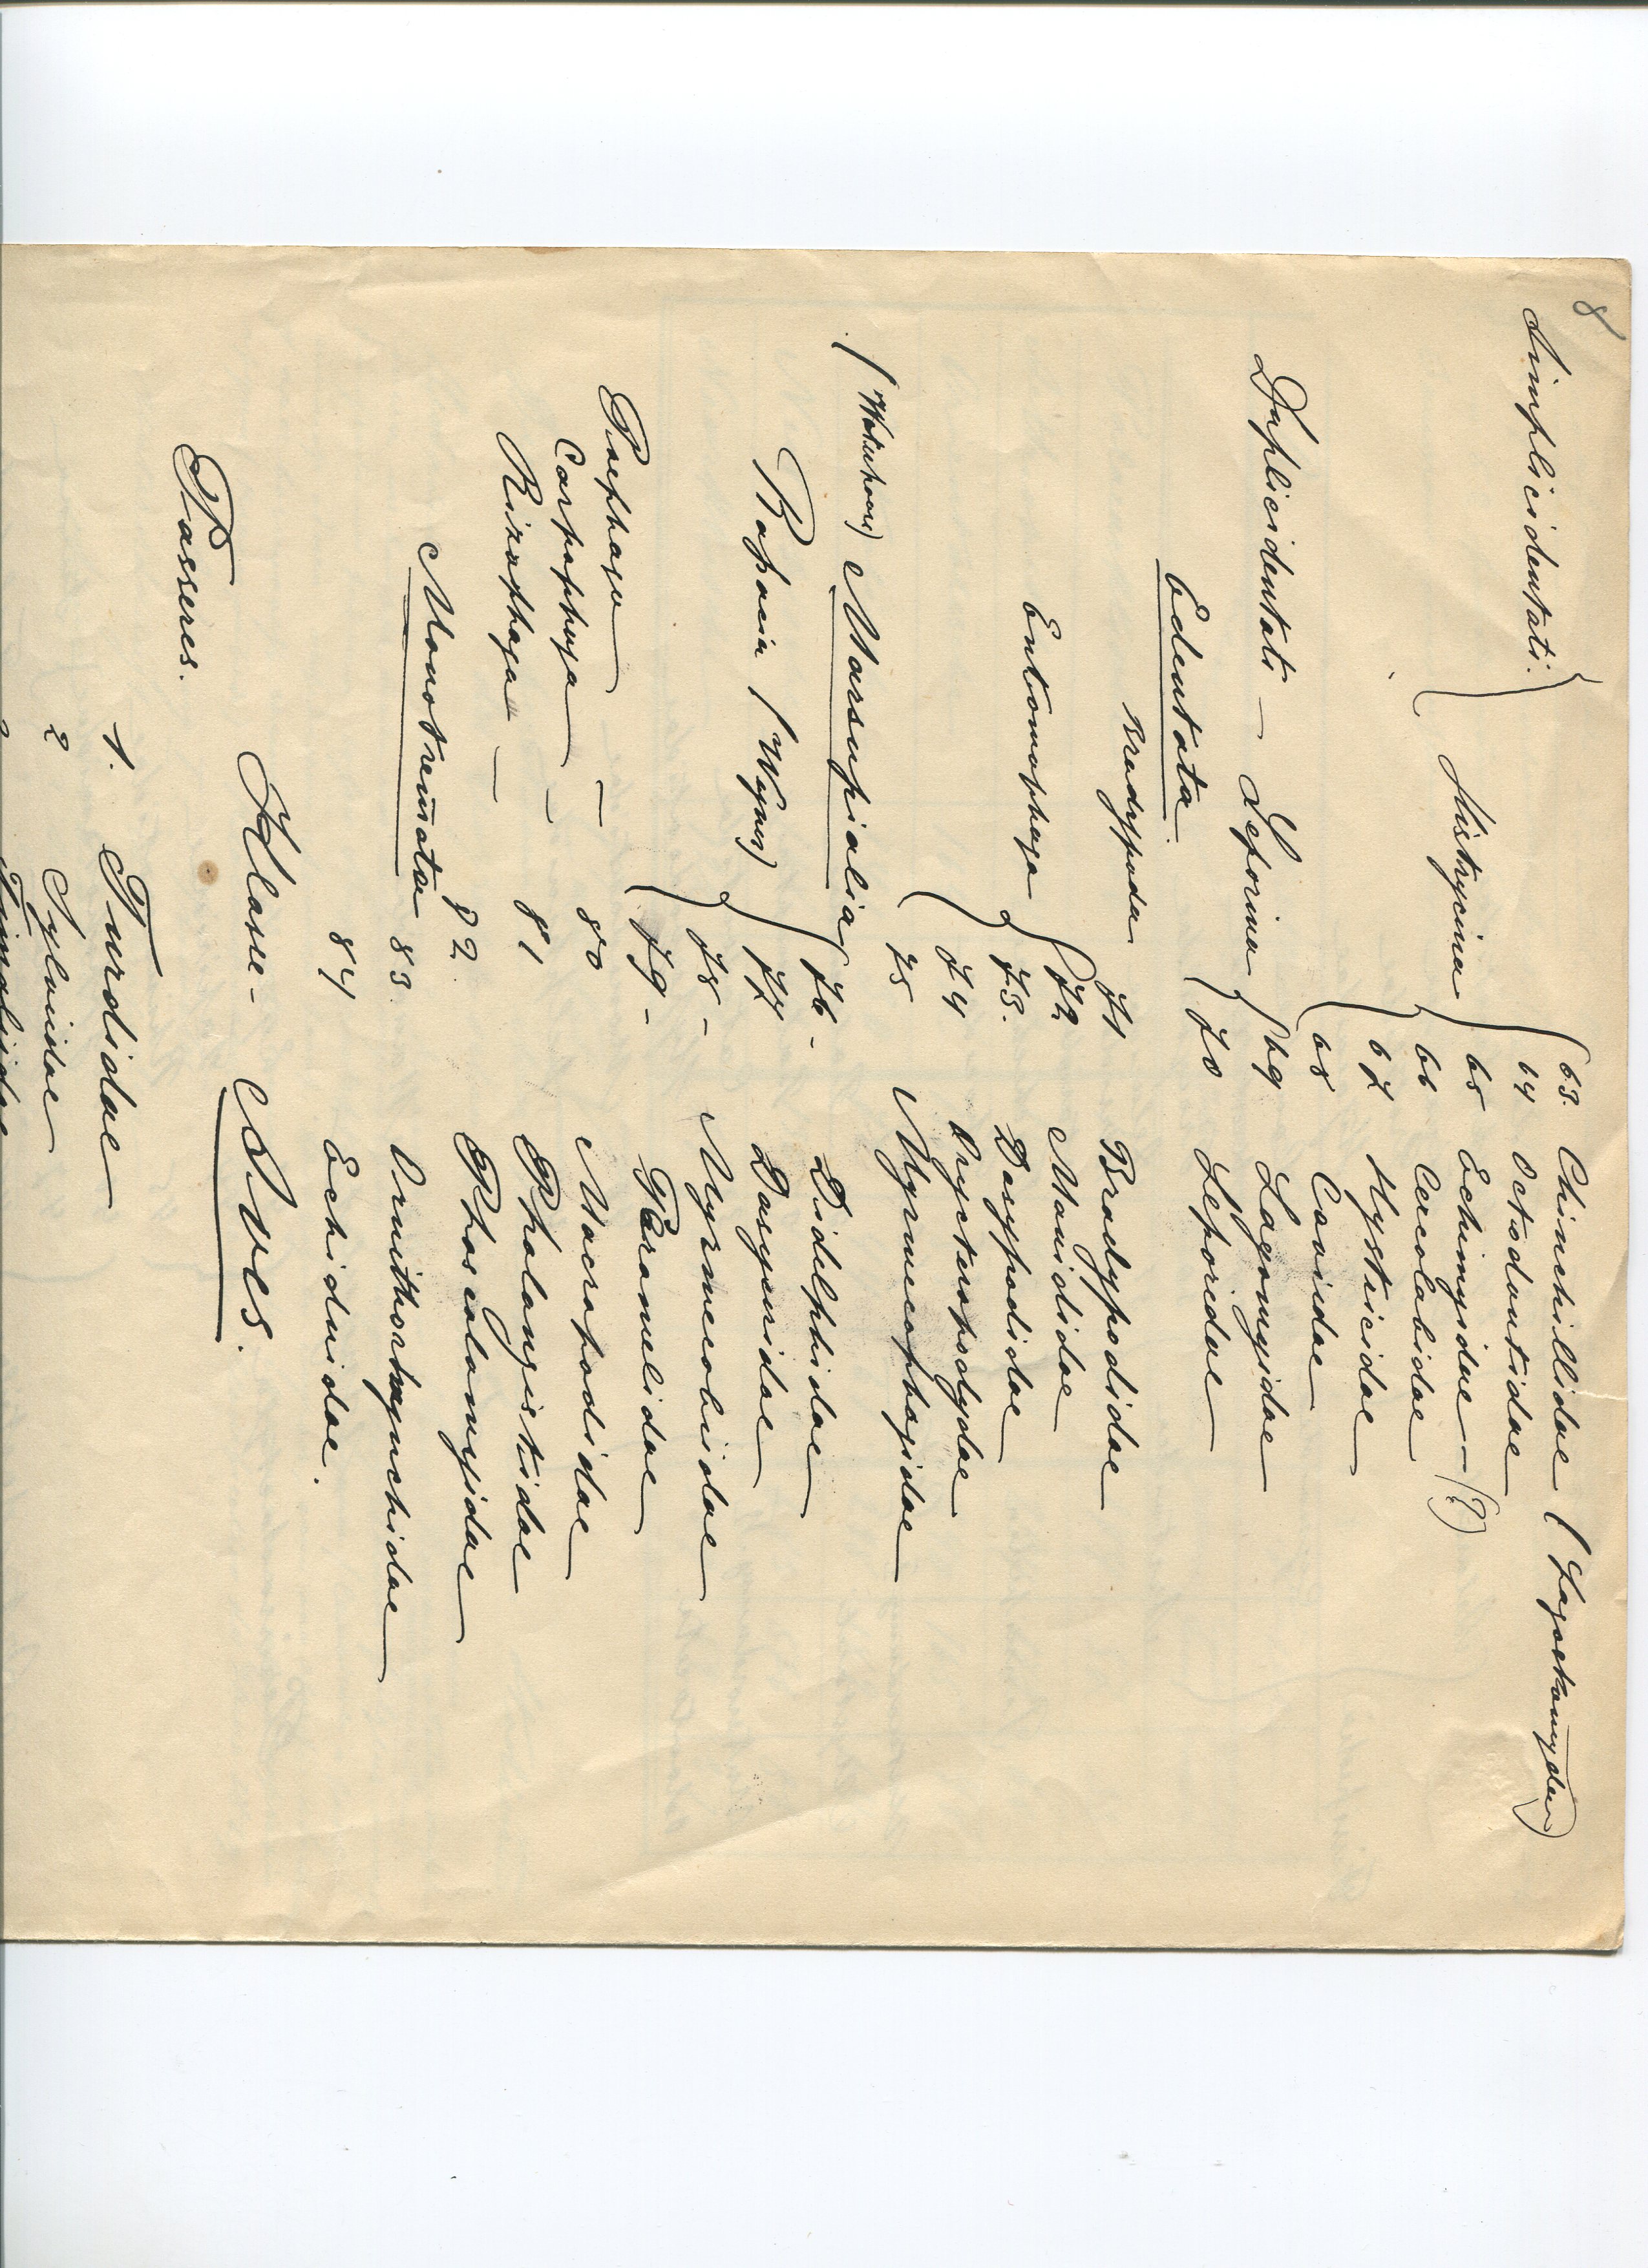 8
Simplicidentati. 63. Chinchillidae (Lagostomyden)
64 Octodontidae
Histrycina 65 Echimyidae - (?)
66 Cercolabidae
67 Hystricidae
68 Cavidae
Duplicidentati - Leporina 69 Lagomyidae
70 Leporidae
Edentata.
Bradypoda 71 Bradypodidae
72 Manididae
Entomophaga 73. Dasypodidae
74 Orycteropodydae
75 Myrmecophagidae
(Waterhouse) Marsupialia 76 - Didelphidae
Rapacia (Wagner) 77 Dasyuridae
78 - Myrmecobiidae
79 - Peramelidae
Poephaga - 80 Macropodidae
Carpophaga - 81 Phalangistidae
Rizophaga - 82. Phascolomyidae
Monotremata 83. Ornithorhynchidae
84 Echidnidae.
Klasse - Aves.
Passeres.
1. Turdidae
2 Sylviidae
Timaliidae